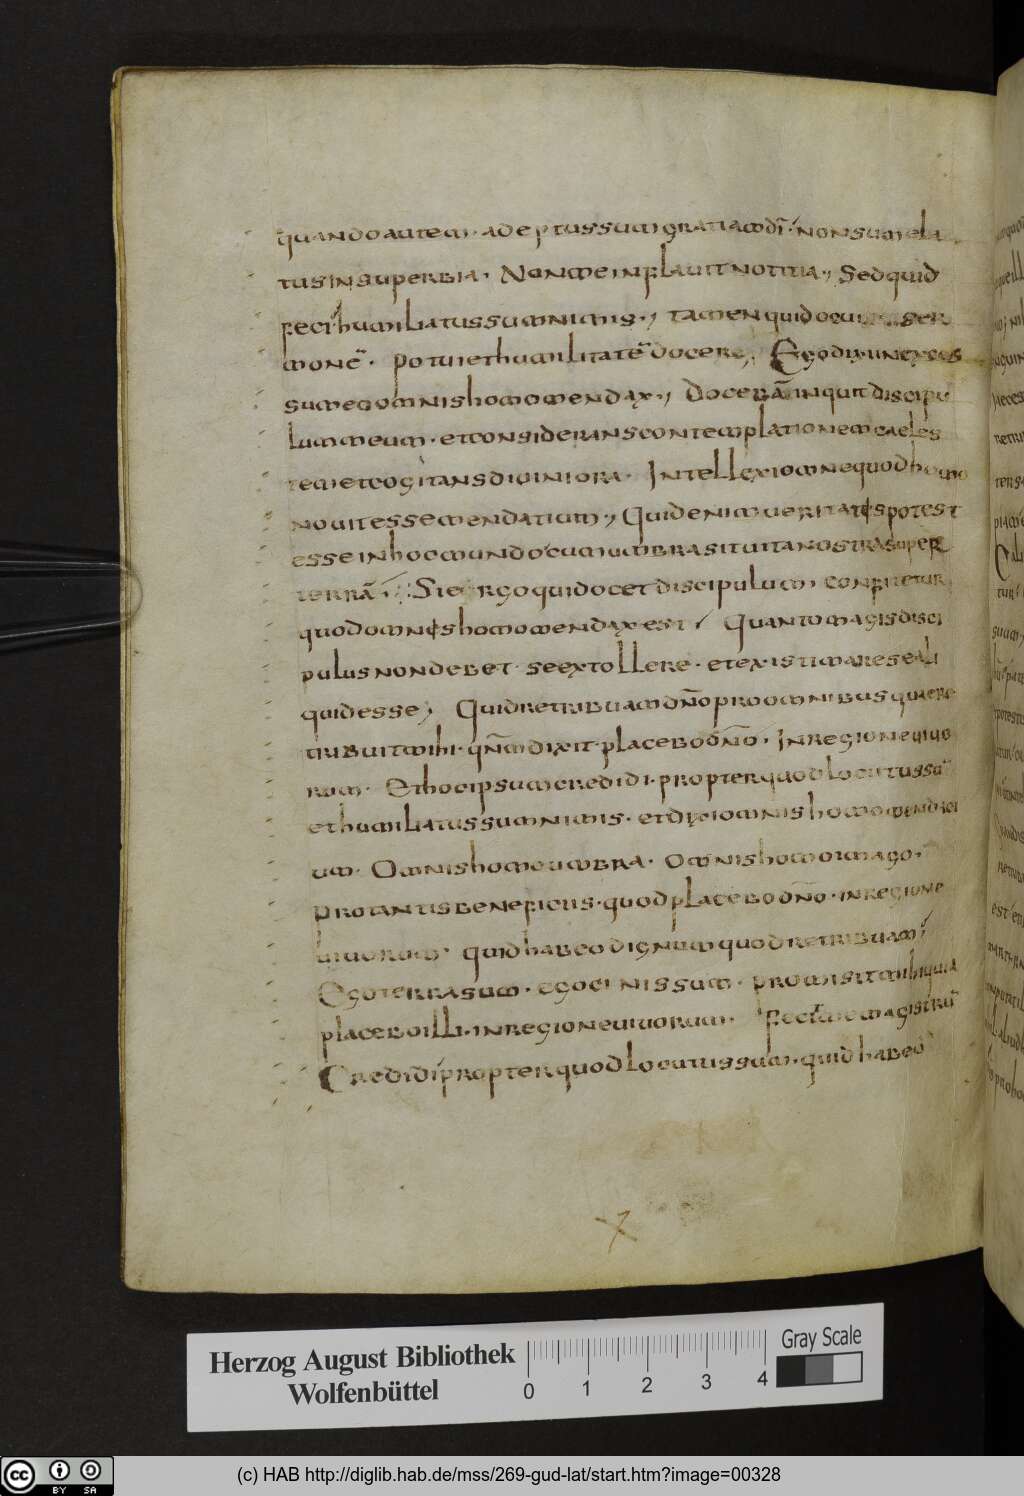 quando autem · adeptus sum gratiam dī · non sum ela
tus in superbia · Non me inflavit notitia ·, Sed quid
feci humiliatus sum nimis ·, tamen qui docui ser
monē · potui et humilitatē docere, Ego dixi in exces
su meo omnis homo mendax ·, Docebā inquit discipu
lum meum · et considerans contemplationem caeles
tem et cogitans diviniora · Intellexi omne quod homo
novit esse mendatium ·, Quid enim veritatis potest
esse in hoc mundo cum umbra sit vita nostra super
terrā · Si ergo qui docet discipulum confitetur
quod omnis homo mendax est · Quanto magis disci
pulus non debet se extollere · et existimare se ali
quid esse, Quid retribuam dño pro omnibus quae re
tribuit mihi · qñm dixit placebo dño · In regione vivo
rum · Et hoc ipsum credidi · propter quod locutus sū
et humiliatus sum nimis · et dixi omnis homo mendaci
um · Omnis homo umbra · Omnis homo imago ·
pro tantis beneficiis · quod placebo dño · in regione
vivorum · quid habeo dignum quod retribuam
Ego terra sum · ego cinis sum · promisit mihi quia
placebo illi · in regione vivorum · magistrū
Credidi propter quod locutus sum · quid habeo
Herzog August Bibliothek
Wolfenbüttel
0 1 2 3 4
Gray Scale
cc BY SA
(c) HAB http://diglib.hab.de/mss/269-gud-lat/start.htm?image=00328